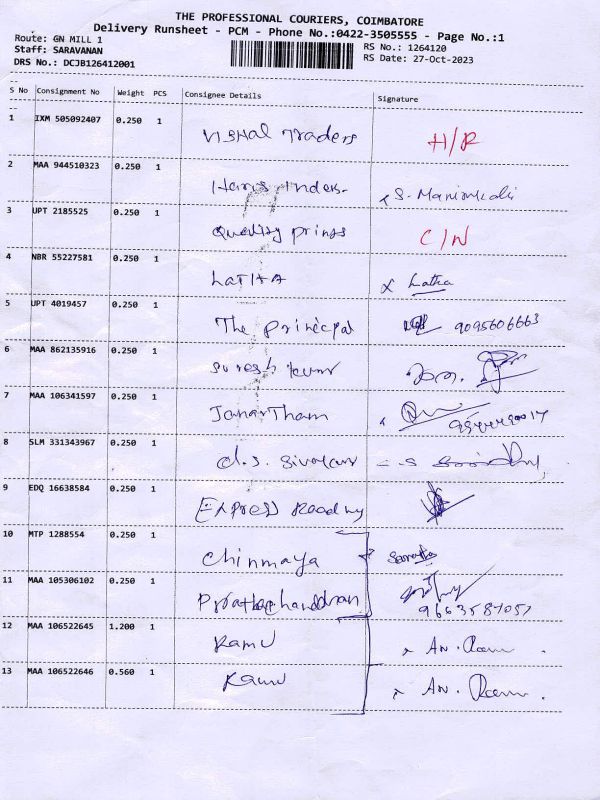 THE PROFESSIONAL COURIERS, COIMBATORE
Delivery Runsheet - PCM - Phone No.:0422-3505555 - Page No.:1
Route: GN MILL 1
Staff: SARAVANAN
DRS No.: DCJB126412001
RS No.: 1264120
RS Date: 27-Oct-2023
S No Consignment No Weight PCS Consignee Details Signature
1 IXM 505092407 0.250 1 Vishal Traders H/R
2 MAA 944510323 0.250 1
3 UPT 2185525 0.250 1 Quality prings C/N
4 NBR 55227581 0.250 1 LATHA Latha
5 UPT 4019457 0.250 1 The principal 9095606663
6 MAA 862135916 0.250 1 Suresh kumr
7 MAA 106341597 0.250 1 JanarTham
8 SLM 331343967 0.250 1 d.s. Sivakumr
9 EDQ 16638584 0.250 1 Express Roadwy
10 MTP 1288554 0.250 1 Chinmaya
11 MAA 105306102 0.250 1 9663587057
12 MAA 106522645 1.200 1 Ramu AN. Ramu
13 MAA 106522646 0.560 1 Ramu AN. Ramu